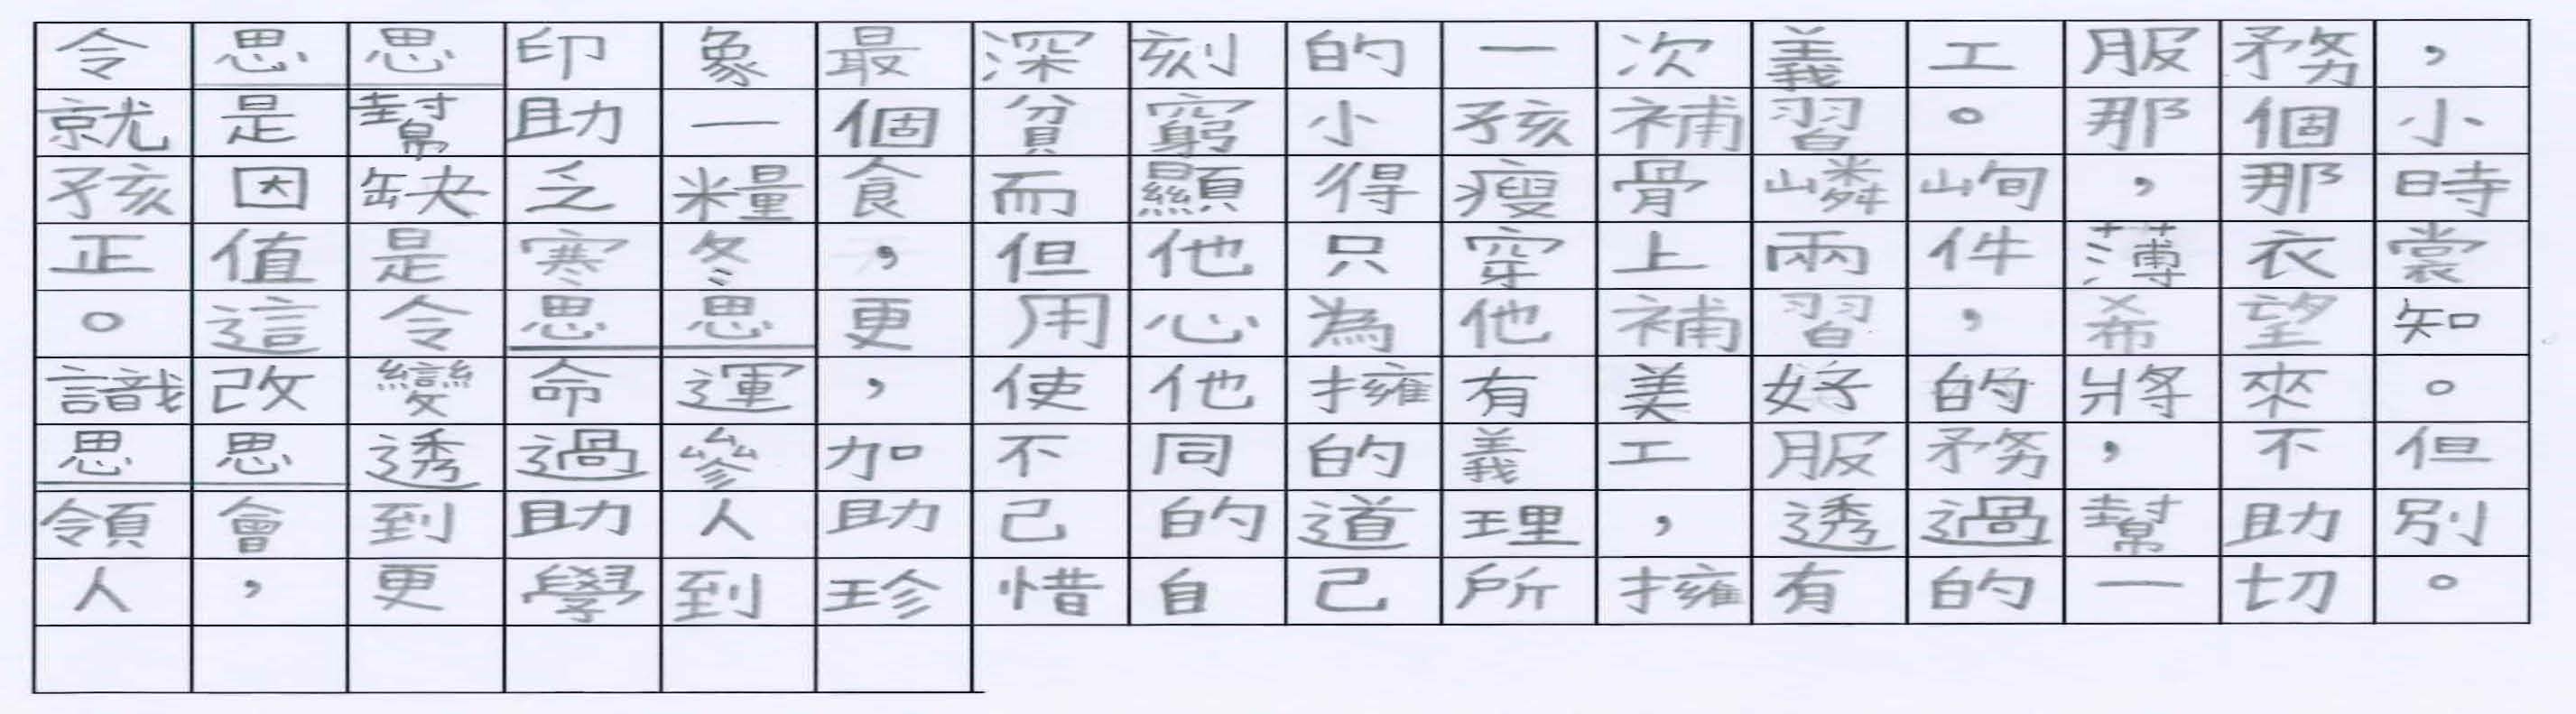 令思思印象最深刻的一次義工服務，
就是幫助一個貧窮小孩補習。那個小
孩因缺乏糧食而顯得瘦骨嶙峋，那時
正值是寒冬，但他只穿上兩件薄衣裳
。這令思思更用心為他補習，希望知
識改變命運，使他擁有美好的將來。
思思透過參加不同的義工服務，不但
領會到助人助己的道理，透過幫助別
人，更學到珍惜自己所擁有的一切。